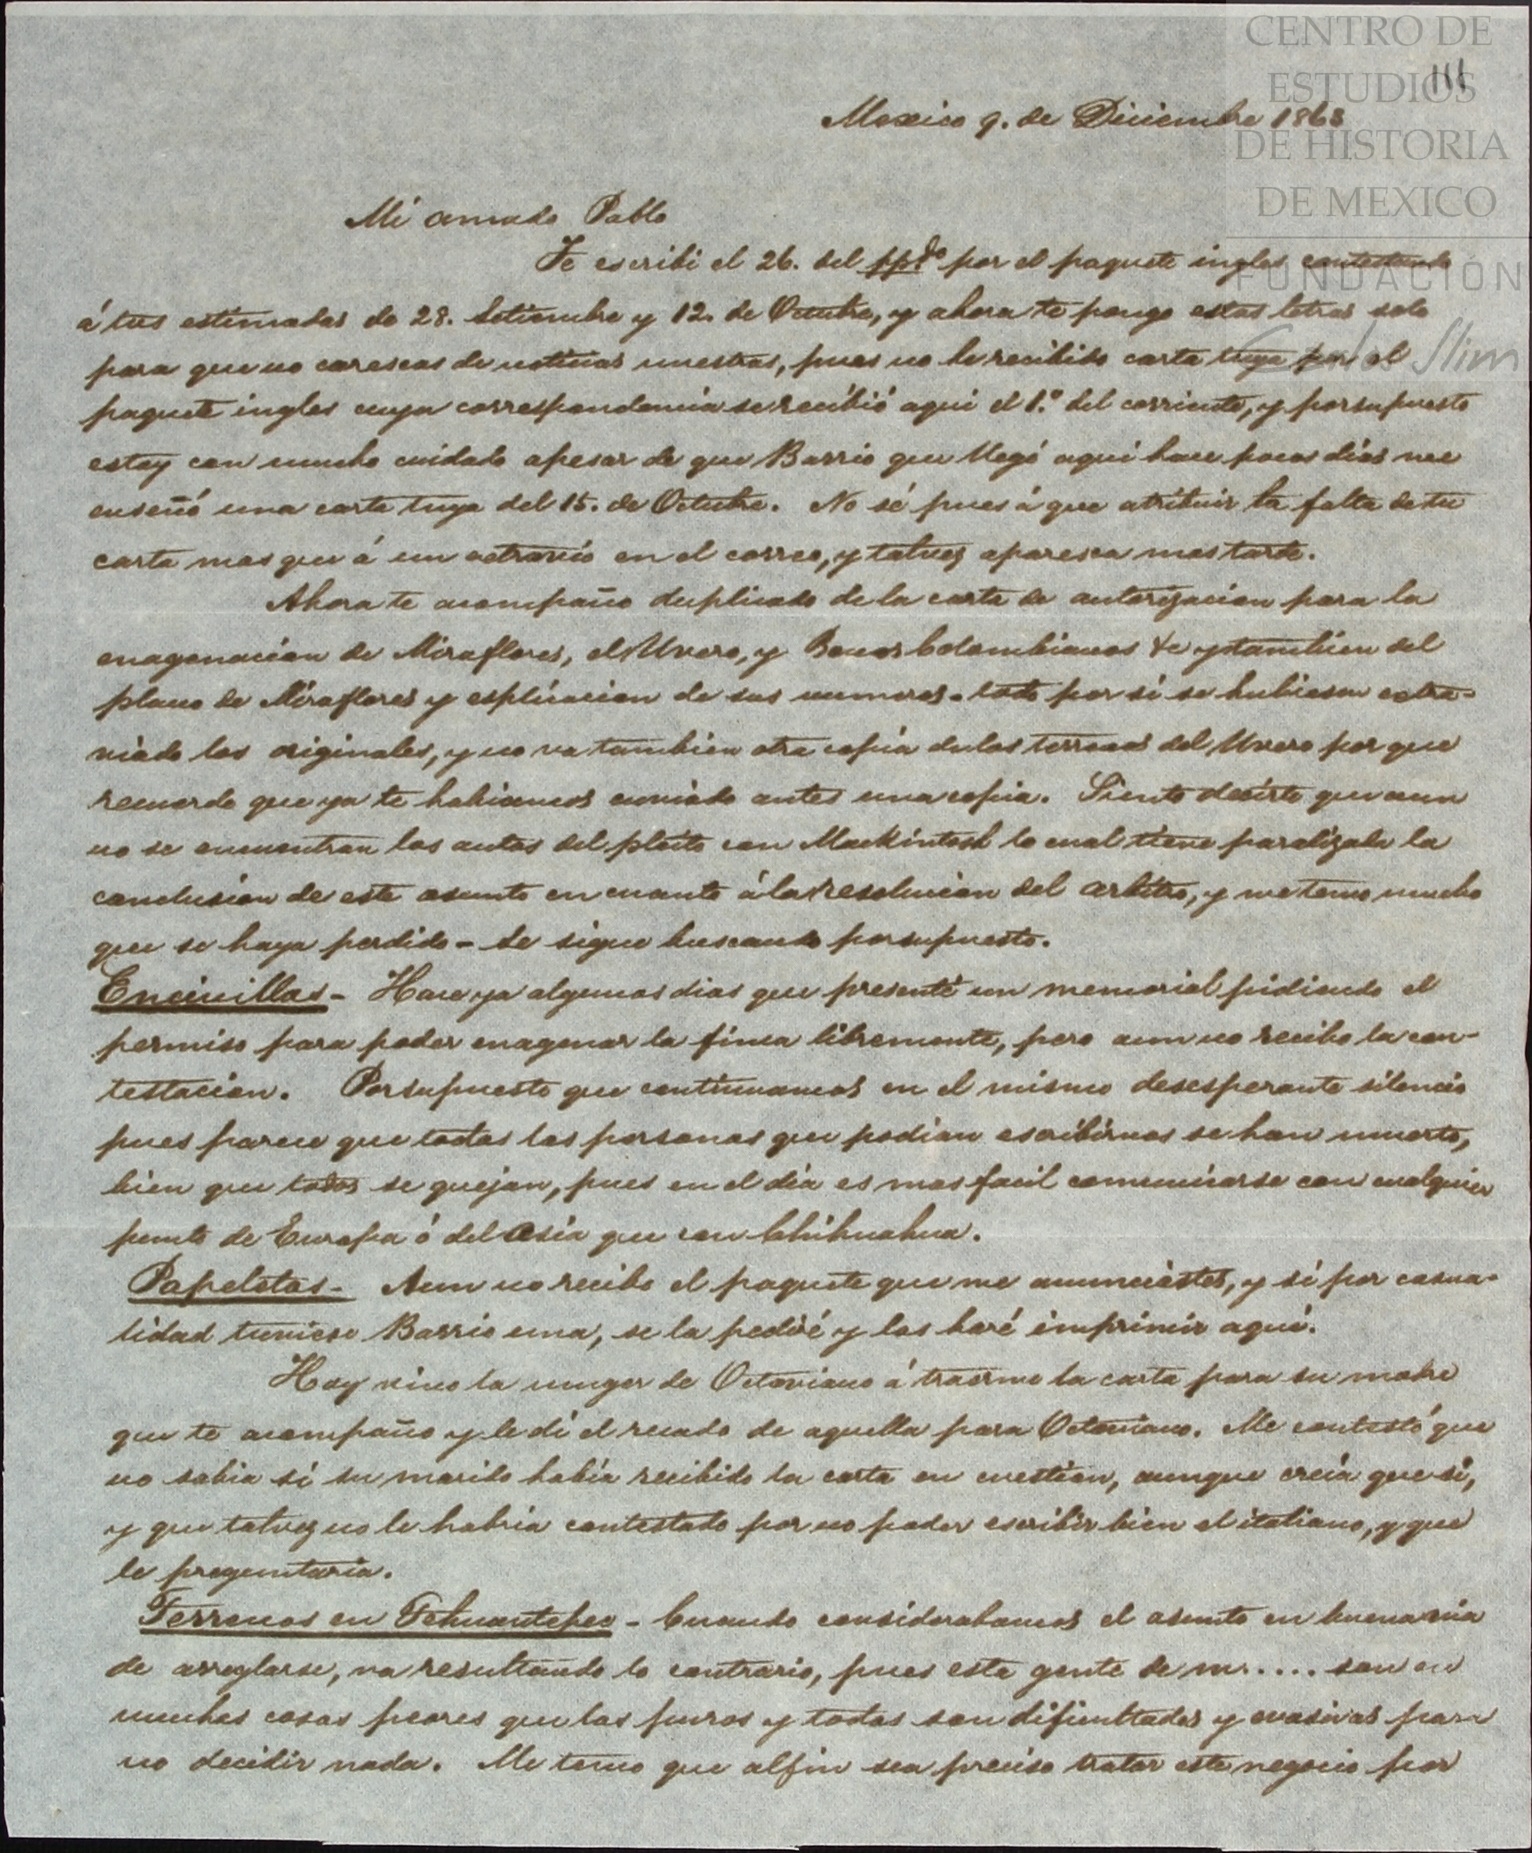 CENTRO DE
ESTUDIOS
DE HISTORIA
DE MEXICO
FUNDACIÓN
Carlos Slim
111
Mexico 9. de Diciembre 1863
Mi amado Pablo
Te escribi el 26. del pp.do por el paquete ingles contestando
á tus estimadas de 28. Setiembre y 12. de Octubre, y ahora te pongo estas letras solo
para que no carescas de noticias nuestras, pues no he recibido carta tuya por el
paquete ingles cuya correspondencia se recibió aqui el 1.º del corriente, y porsupuesto
estoy con mucho cuidado apesar de que Barrio que llegó aqui hace pocos dias me
enseñó una carta tuya del 15. de Octubre. No sé pues á que atribuir la falta de tu
carta mas que á un extravio en el correo, y talvez aparesca mas tarde.
Ahora te acompaño duplicado de la carta de autorizacion para la
enagenacion de Miraflores, el Uvero, y Bonos Colombianos &c y tambien del
plano de Miraflores y esplicacion de sus numeros. todo por si se hubiesen extra-
viado los originales, y no va tambien otra copia de los terrenos del Uvero por que
recuerdo que ya te habiamos enviado antes una copia. Siento decirte que aun
no se encuentran los autos del pleito con Mackintosh lo cual tiene paralizada la
conclusion de este asunto en cuanto á la resolucion del arbitro, y me temo mucho
que se haya perdido - Se sigue buscando porsupuesto.
Encinillas - Hace ya algunos dias que presenté un memorial pidiendo el
permiso para poder enagenar la finca libremente, pero aun no recibo la con-
testacion. Porsupuesto que continuamos en el mismo desesperante silencio
pues parece que todas las personas que podian escribirnos se han muerto,
bien que todos se quejan, pues en el dia es mas facil comunicarse con cualquier
punto de Europa ó del Asia que con Chihuahua.
Papeletas - Aun no recibo el paquete que me anunciastes, y si por casua-
lidad tuviese Barrio una, se la pediré y las haré imprimir aqui.
Hoy vino la muger de Octaviano á traerme la carta para su madre
que te acompaño y le dí el recado de aquella para Octaviano. Me contestó que
no sabia si su marido habia recibido la carta en cuestion, aunque creia que si,
y que talvez no le habria contestado por no poder escribir bien el italiano, y que
le preguntaria.
Terrenos en Tehuantepec - Cuando considerabamos el asunto en buena via
de arreglarse, va resultando lo contrario, pues esta gente de m.... son en
muchas cosas peores que los puros y todas son dificultades y evasivas para
no decidir nada. Me temo que alfin sea preciso tratar este negocio por